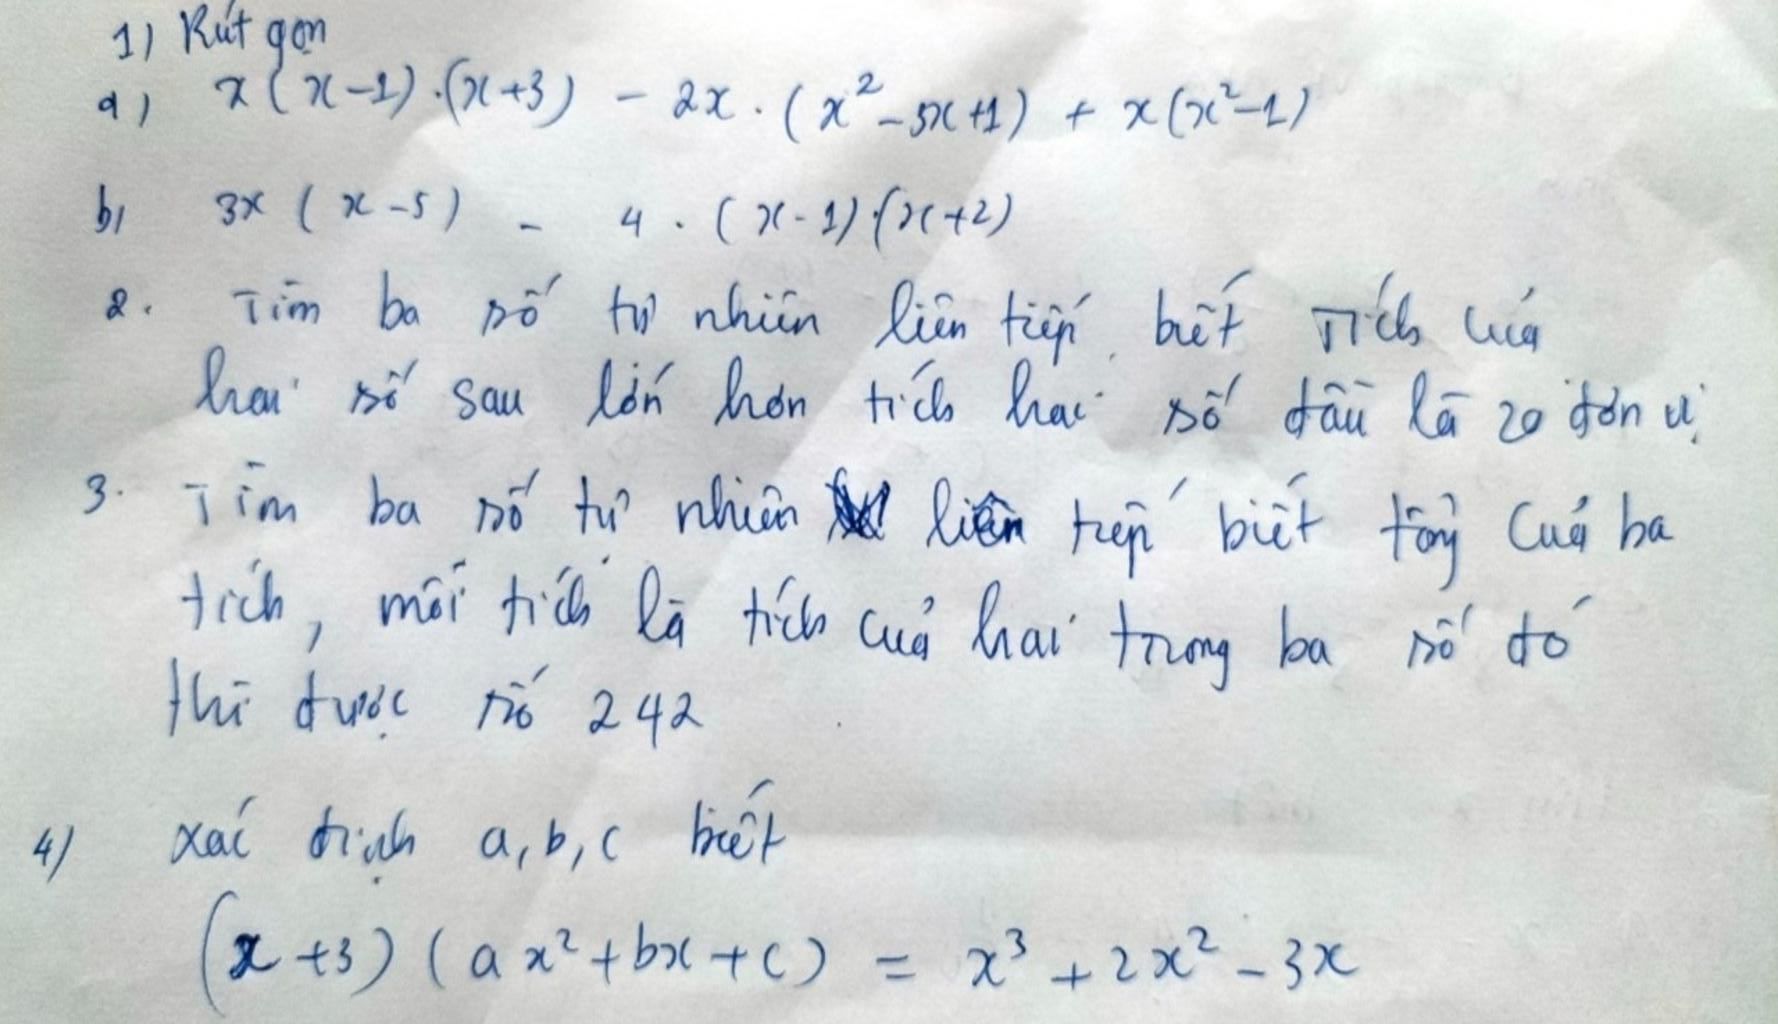 1) Rút gọn
a) x(x-1).(x+3) - 2x.(x²-5x+1) + x(x²-1)
b) 3x(x-5) - 4.(x-1).(x+2)
2. Tìm ba số tự nhiên liên tiếp, biết Tích của
hai số sau lớn hơn tích hai số đầu là 20 đơn vị
3. Tìm ba số tự nhiên liên tiếp biết tổng của ba
tích, mỗi tích là tích của hai trong ba số đó
thì được số 242
4) xác định a, b, c biết
(x+3)(ax²+bx+c) = x³+2x²-3x